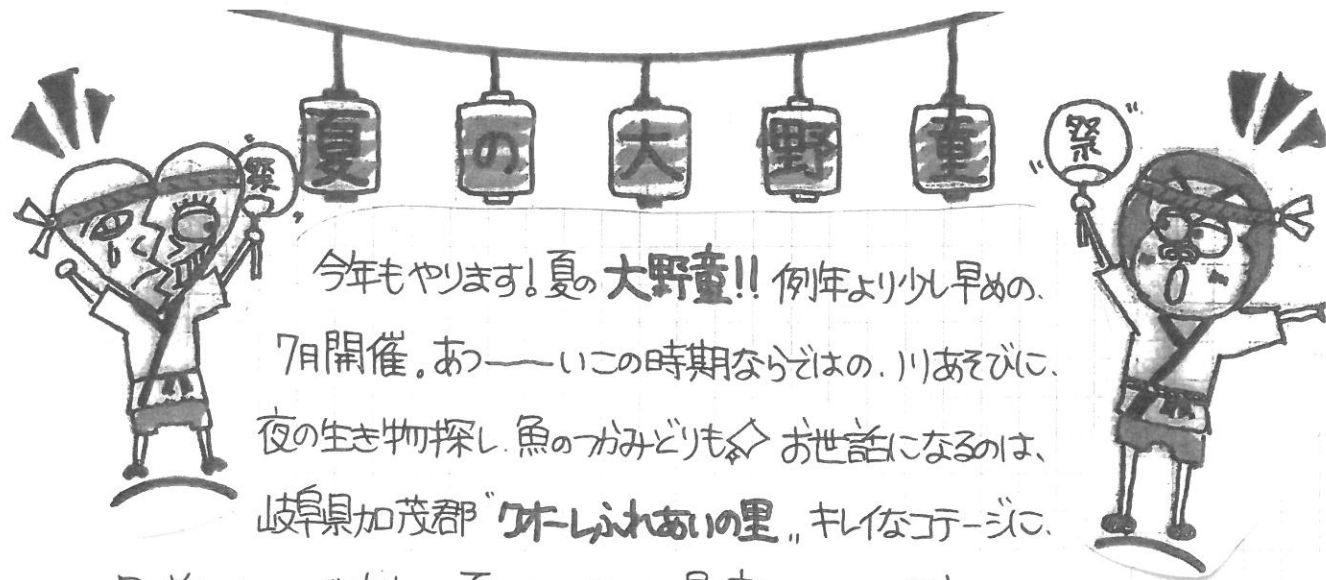 夏の大野童
祭
祭
今年もやります!夏の大野童!!例年より少し早めの、
7月開催。あつ――いこの時期ならではの、川あそびに、
夜の生き物探し、魚のつかみどりも お世話になるのは、
岐阜県加茂郡"クオーレふれあいの里„キレイなコテージに、